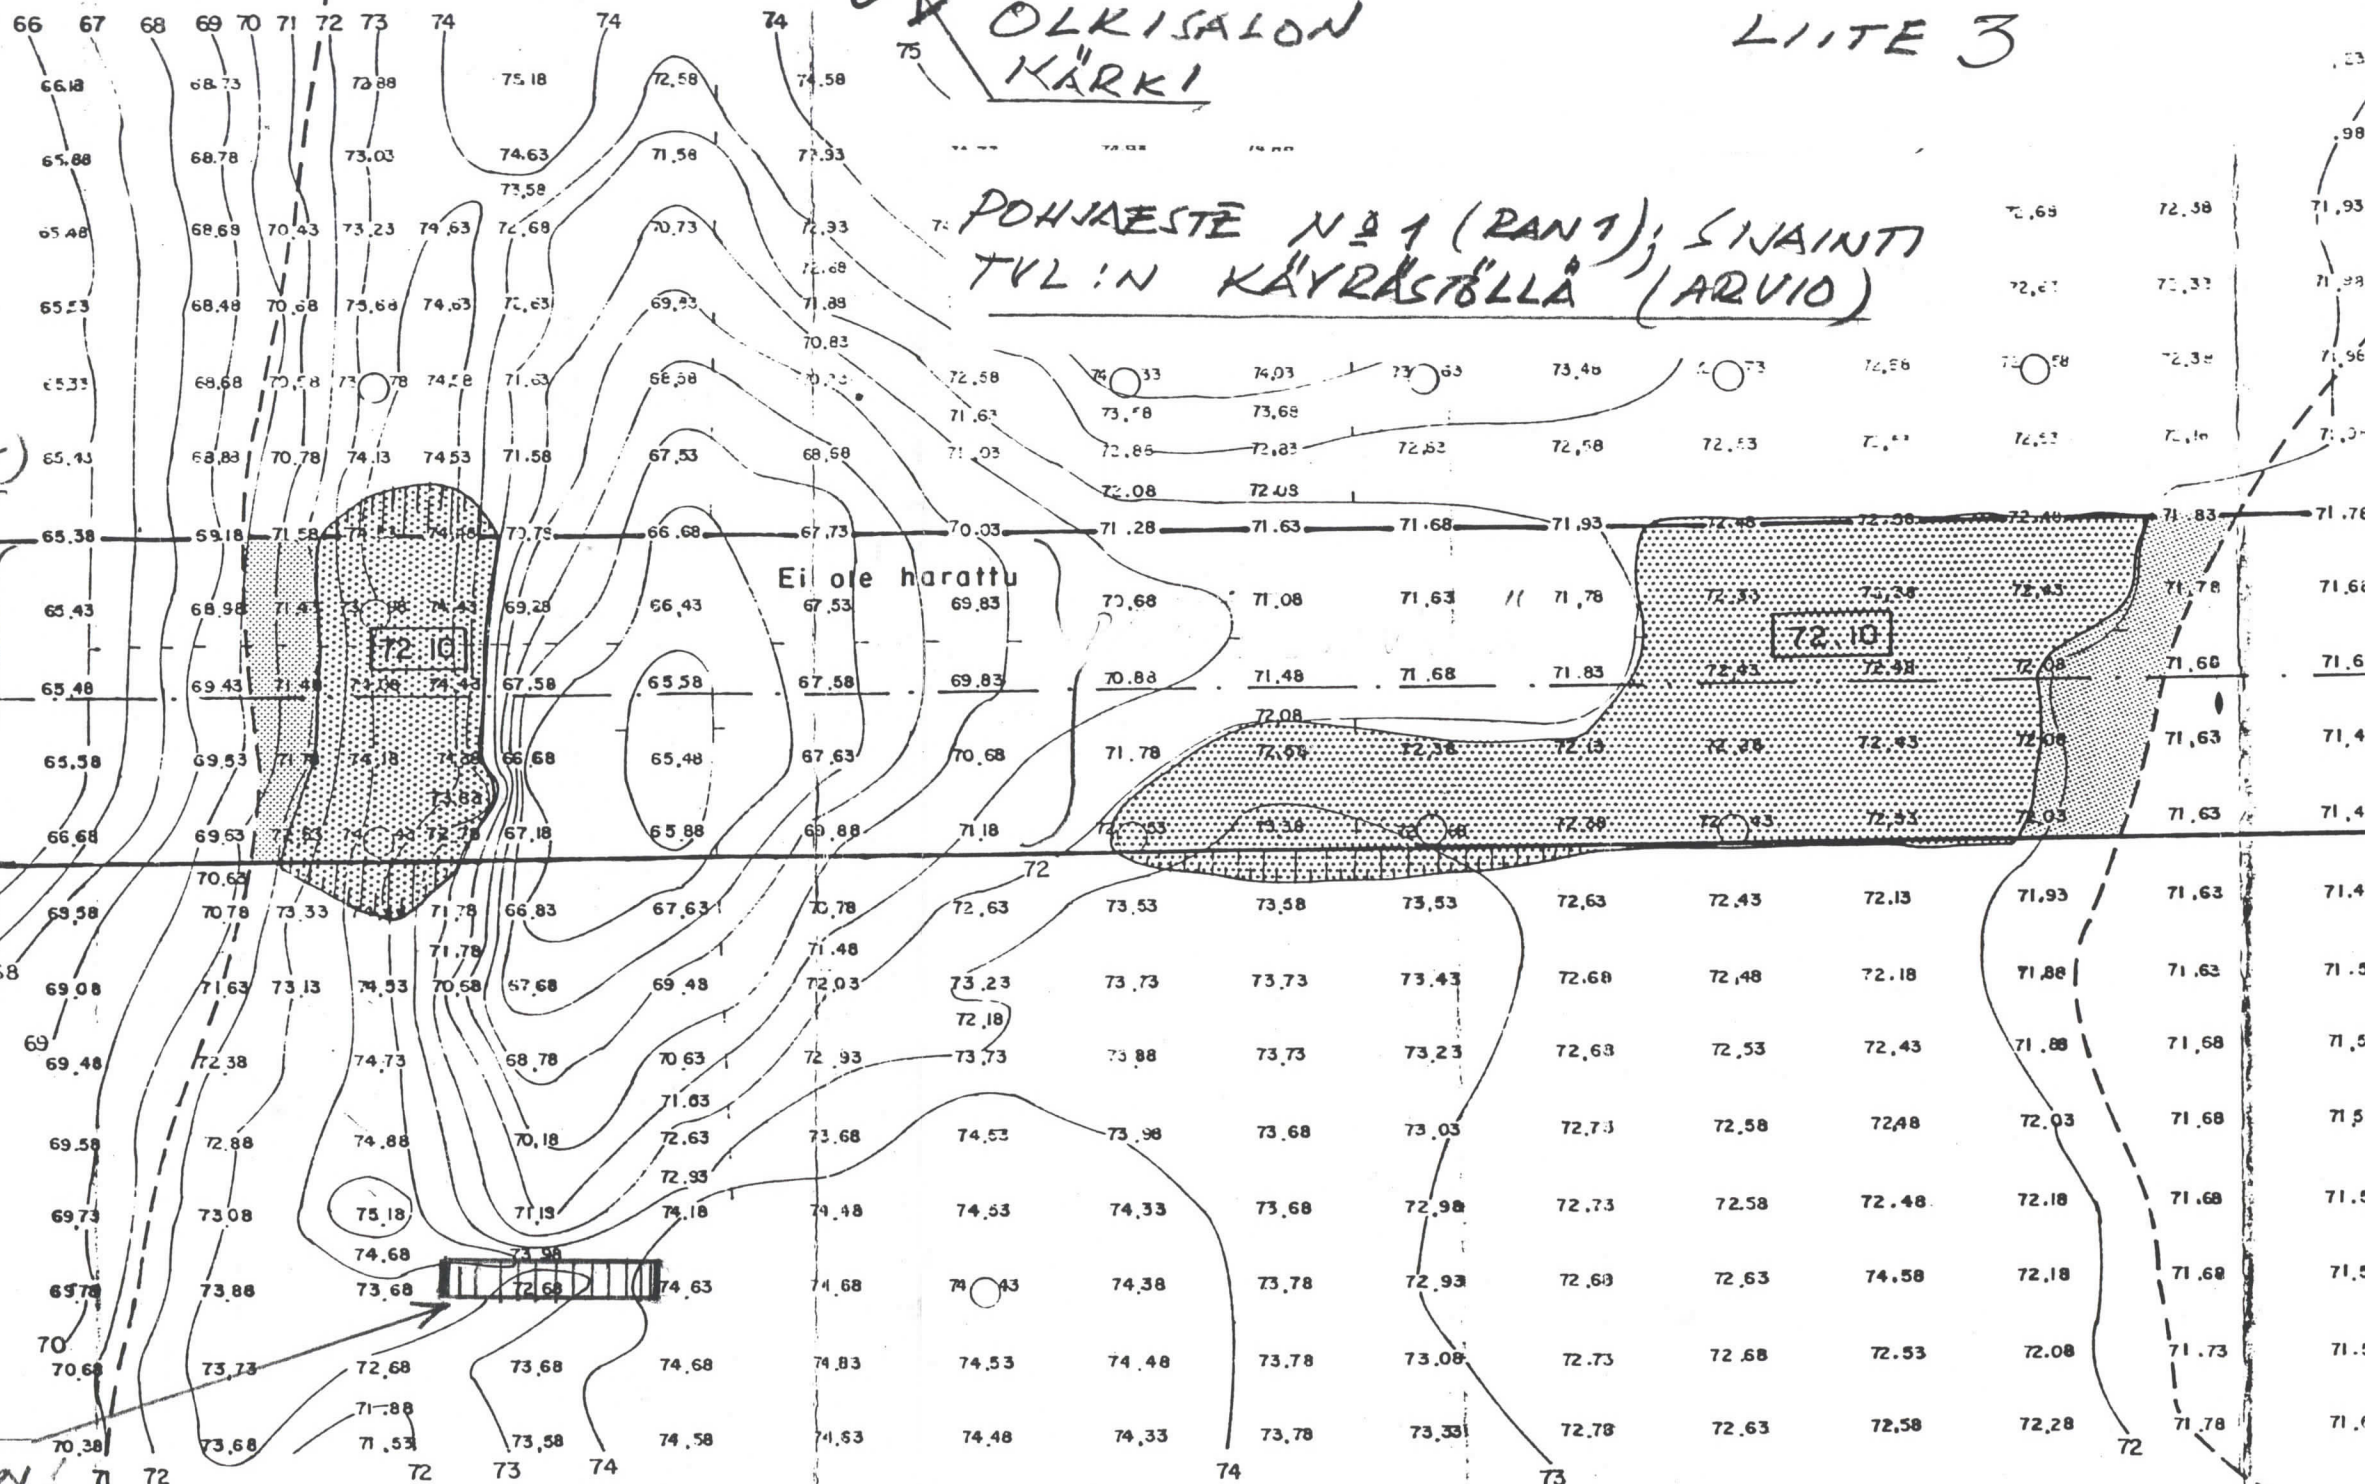 66 67 68 69 70 71 72 73 74 74 74
75
OLKISALON
KÄRKI
LIITE 3
66.18 68.73 73.88 75.18 72.58 74.58
65.88 68.78 73.03 74.63 71.58 .98
73.58
POHJAESTE Nº 1 (RAN 1); SIJAINTI
TVL:N KÄYRÄSTÖLLÄ (ARVIO)
65.48 68.68 70.43 73.23 74.63 72.68 70.73 72.93 72.68 72.58 71.93
72.68
65.53 68.48 70.68 74.63 72.63 69.93 71.88
70.83
68.68 74.58 71.63 68.58 72.58 74 33 74.03 73 63 73.48 72.38
71.63 73.58 73.68
65.43 68.83 70.78 74.13 74.53 71.58 67.53 68.68 71.03 72.83 72.63 72.58 72.53
72.08 72.08
65.38 69.18 71.58 66.68 67.73 70.03 71.28 71.63 71.68 71.93 71.83 71.78
Ei ole harattu
65.43 68.98 71.43 69.28 66.43 67.53 69.83 70.68 71.08 71.63 71.78 72.33 72.43 71.78
72.10 72.10
65.48 69.43 74.43 67.58 65.58 67.58 69.83 70.88 71.48 71.68 71.83 72.43 72.48 72.08 71.68
72.08
65.58 69.53 74.18 66.68 65.48 67.63 70.68 71.78 72.38 72.13 72.28 72.43 72.08 71.63 71.4
73.88
66.68 69.63 67.18 65.88 69.88 71.18 73.38 72.38 72 43 72.53 72.03 71.63 71.4
72
70.63
69.58 70.78 73.33 71.78 66.83 67.63 70.78 72.63 73.53 73.58 73.53 72.63 72.43 72.13 71.93 71.63 71.4
71.78 71.48
68
69.08 71.63 73.13 74.53 70.68 67.68 69.48 72.03 73.23 73.73 73.73 73.43 72.68 72.48 72.18 71.88 71.63 71.5
72.18
69
69.48 72.38 74.73 68.78 70.63 72.93 73.73 73.88 73.73 73.23 72.68 72.53 72.43 71.88 71.68 71.5
71.63
69.58 72.88 74.88 70.18 72.63 73.68 74.53 73.98 73.68 73.03 72.73 72.58 72.48 72.03 71.68 71.5
72.93
69.73 73.08 75.18 71.13 74.18 74.48 74.53 74.33 73.68 72.98 72.73 72.58 72.48 72.18 71.68 71.5
74.68 73.98
69.78 73.88 73.68 72.68 74.63 74.68 74 43 74.38 73.78 72.93 72.68 72.63 74.58 72.18 71.68 71.5
70
70.68 73.73 72.68 73.68 74.68 74.83 74.53 74.48 73.78 73.08 72.73 72.68 72.53 72.08 71.73 71.5
71.88
70.38 73.68 71.53 73.58 74.58 74.63 74.48 74.33 73.78 73.33 72.78 72.63 72.58 72.28 71.78 71.6
71 72 72 73 74 74 73 72